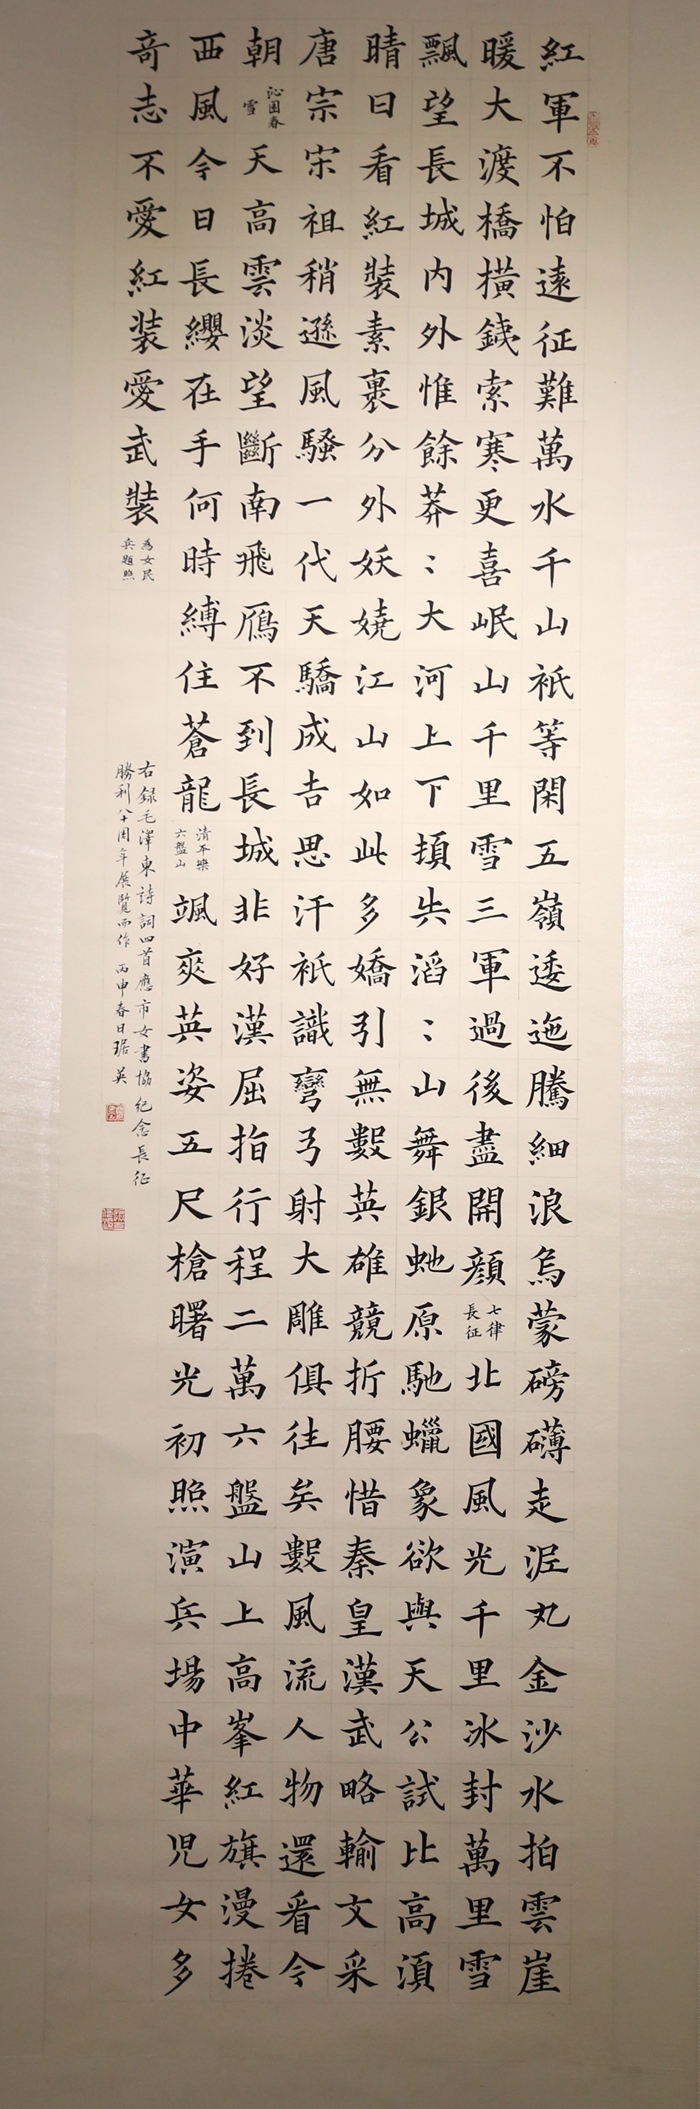 紅軍不怕遠征難萬水千山祇等閑五嶺逶迤騰細浪烏蒙磅礴走泥丸金沙水拍雲崖
暖大渡橋橫銕索寒更喜岷山千里雪三軍過後盡開顏七律長征北國風光千里冰封萬里雪
飄望長城內外惟餘莽〻大河上下頓失滔〻山舞銀虵原馳蠟象欲與天公試比高須
晴日看紅裝素裹分外妖嬈江山如此多嬌引無數英雄競折腰惜秦皇漢武略輸文采
唐宗宋祖稍遜風騷一代天驕成吉思汗祇識彎弓射大雕俱往矣數風流人物還看今
朝沁園春雪天高雲淡望斷南飛鴈不到長城非好漢屈指行程二萬六盤山上高峯紅旗漫捲
西風今日長纓在手何時縛住蒼龍清平樂六盤山颯爽英姿五尺槍曙光初照演兵場中華兒女多
奇志不愛紅裝愛武裝為女民兵題照
右錄毛澤東詩詞四首應市女書協紀念長征
勝利八十周年展覽而作丙申春日琚英